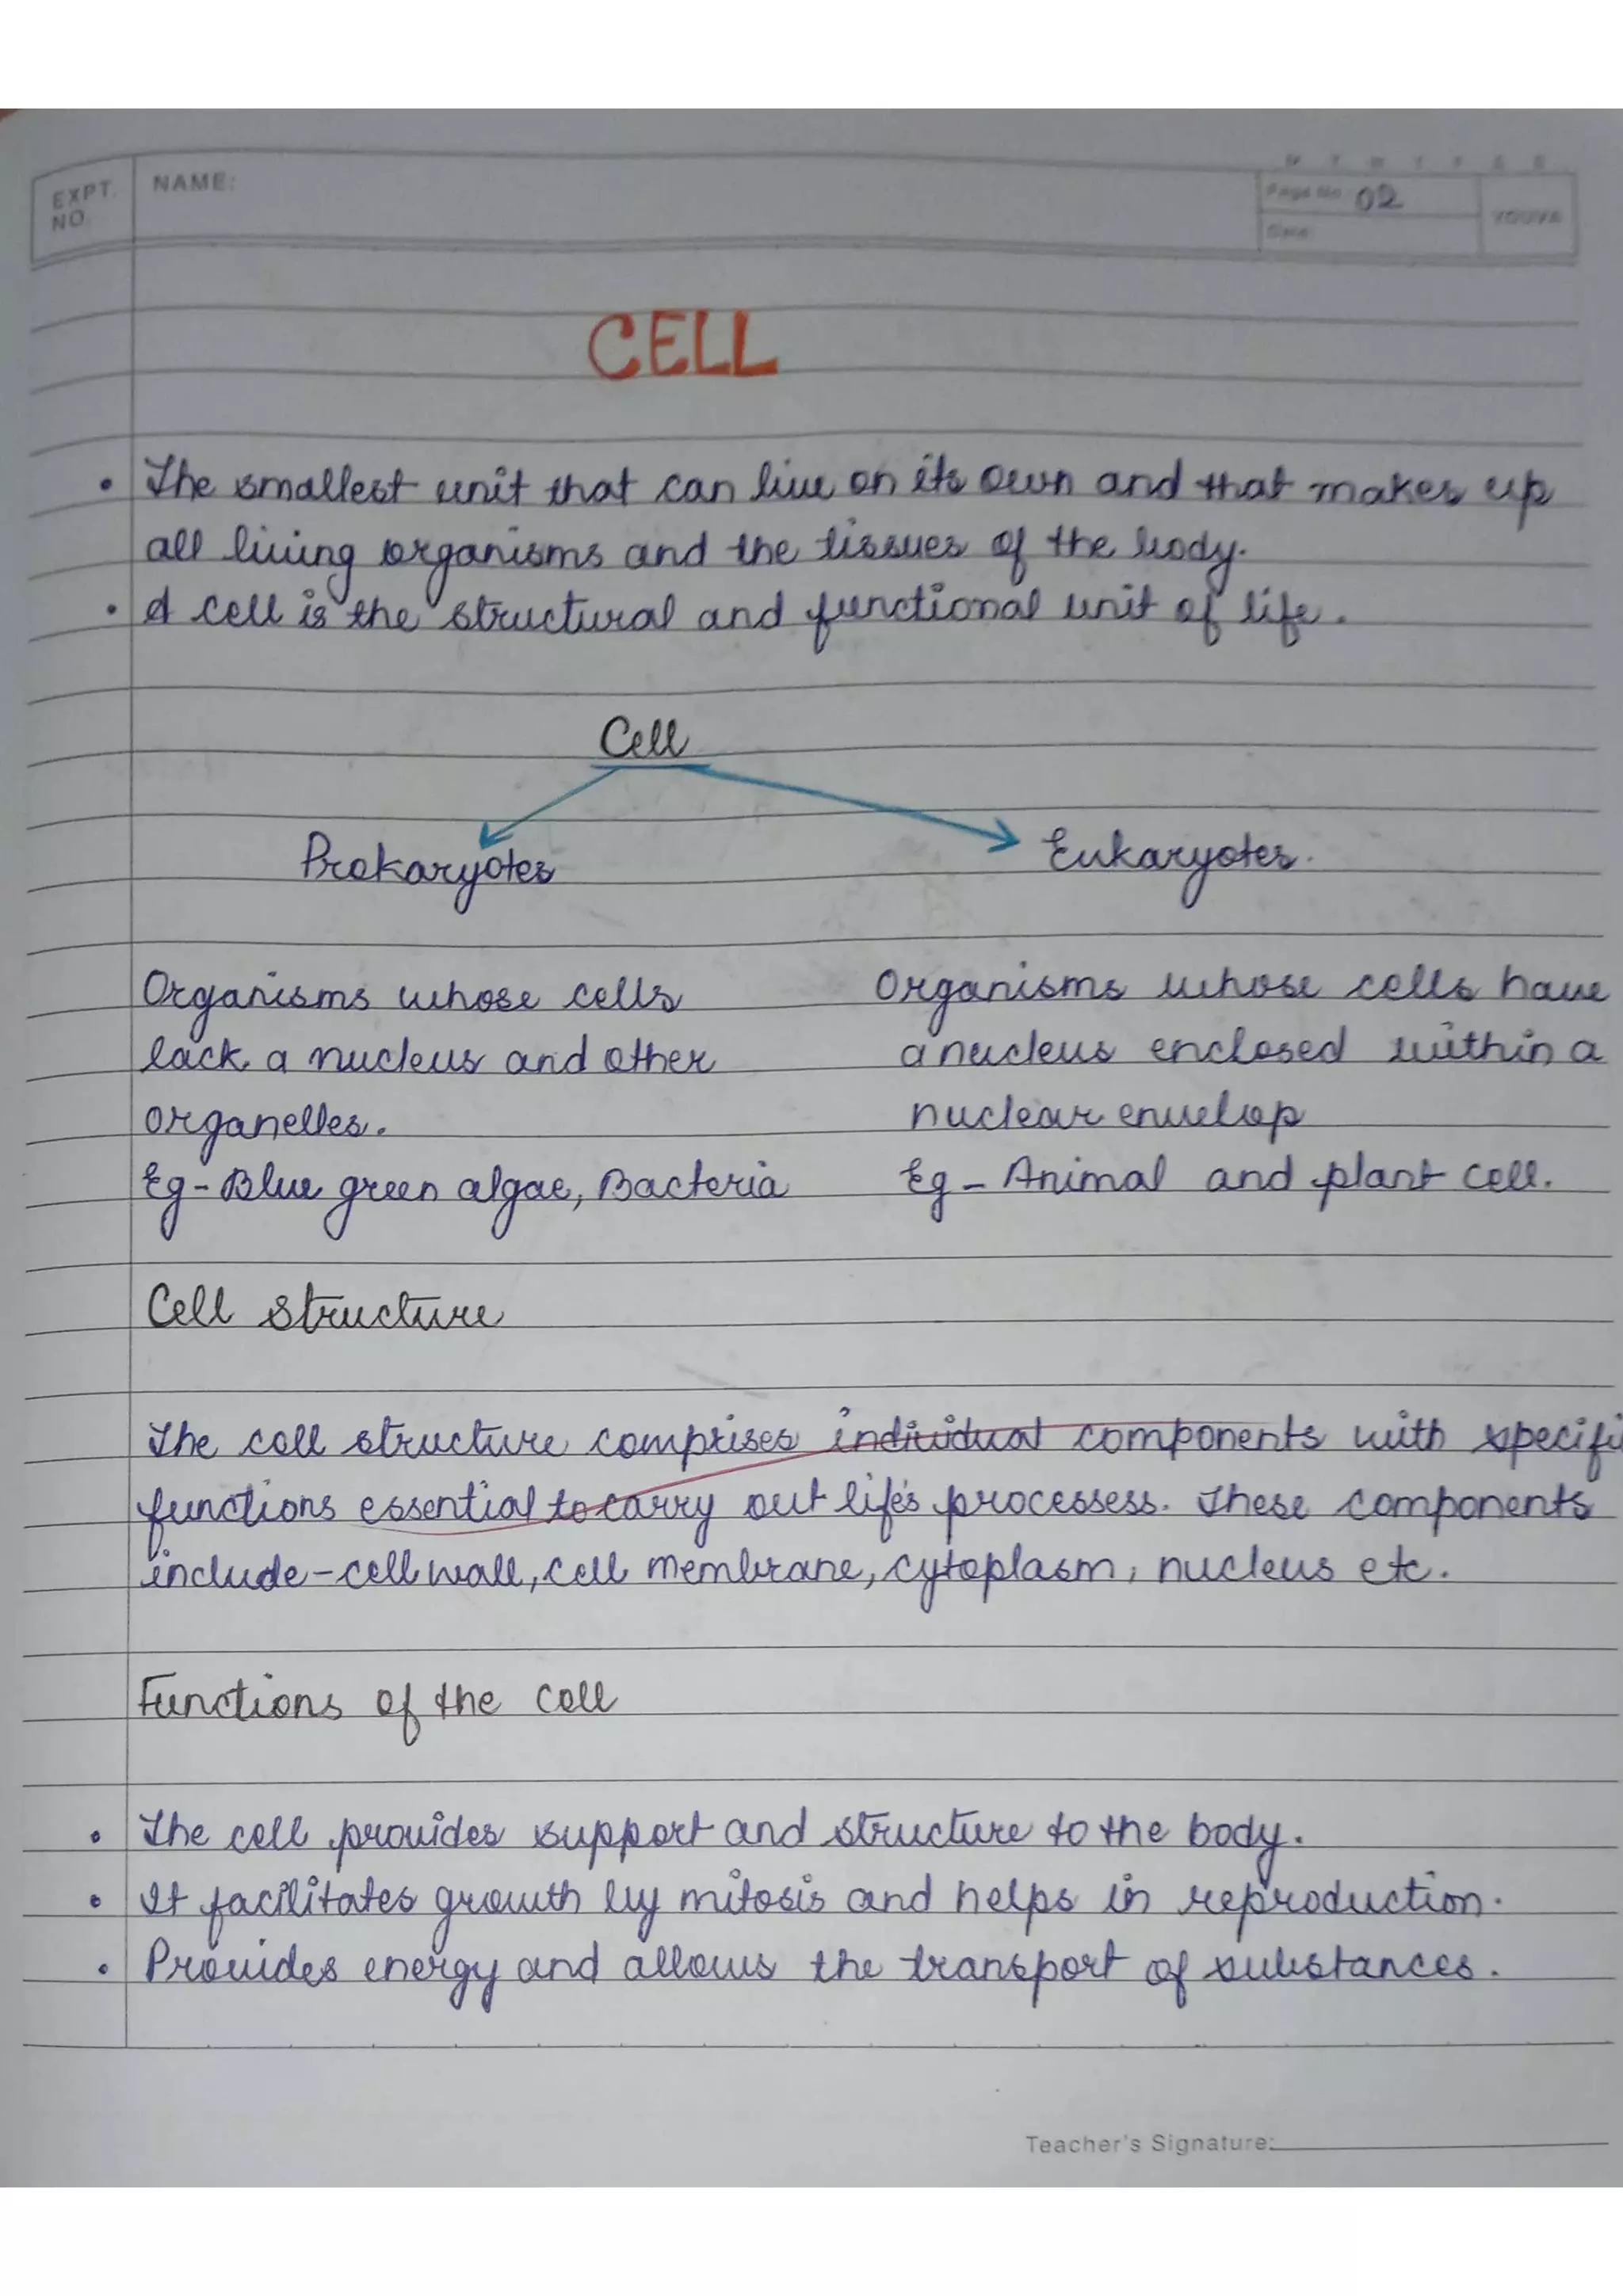 M T W T F S S
EXPT. NO.
NAME:
Page No. 02
Date
YOUVA
CELL
• The smallest unit that can live on its own and that makes up
all living organisms and the tissues of the body.
• A cell is the structural and functional unit of life.
Cell
Prokaryotes
Eukaryotes.
Organisms whose cells
lack a nucleus and other
organelles.
Eg - Blue green algae, Bacteria
Organisms whose cells have
a nucleus enclosed within a
nuclear envelop
Eg - Animal and plant cell.
Cell structure
The cell structure comprises individual components with specifi
functions essential to carry out life's processess. These components
include - cell wall, cell membrane, cytoplasm, nucleus etc.
Functions of the cell
• The cell provides support and structure to the body.
• It facilitates growth by mitosis and helps in reproduction.
• Provides energy and allows the transport of substances.
Teacher's Signature: